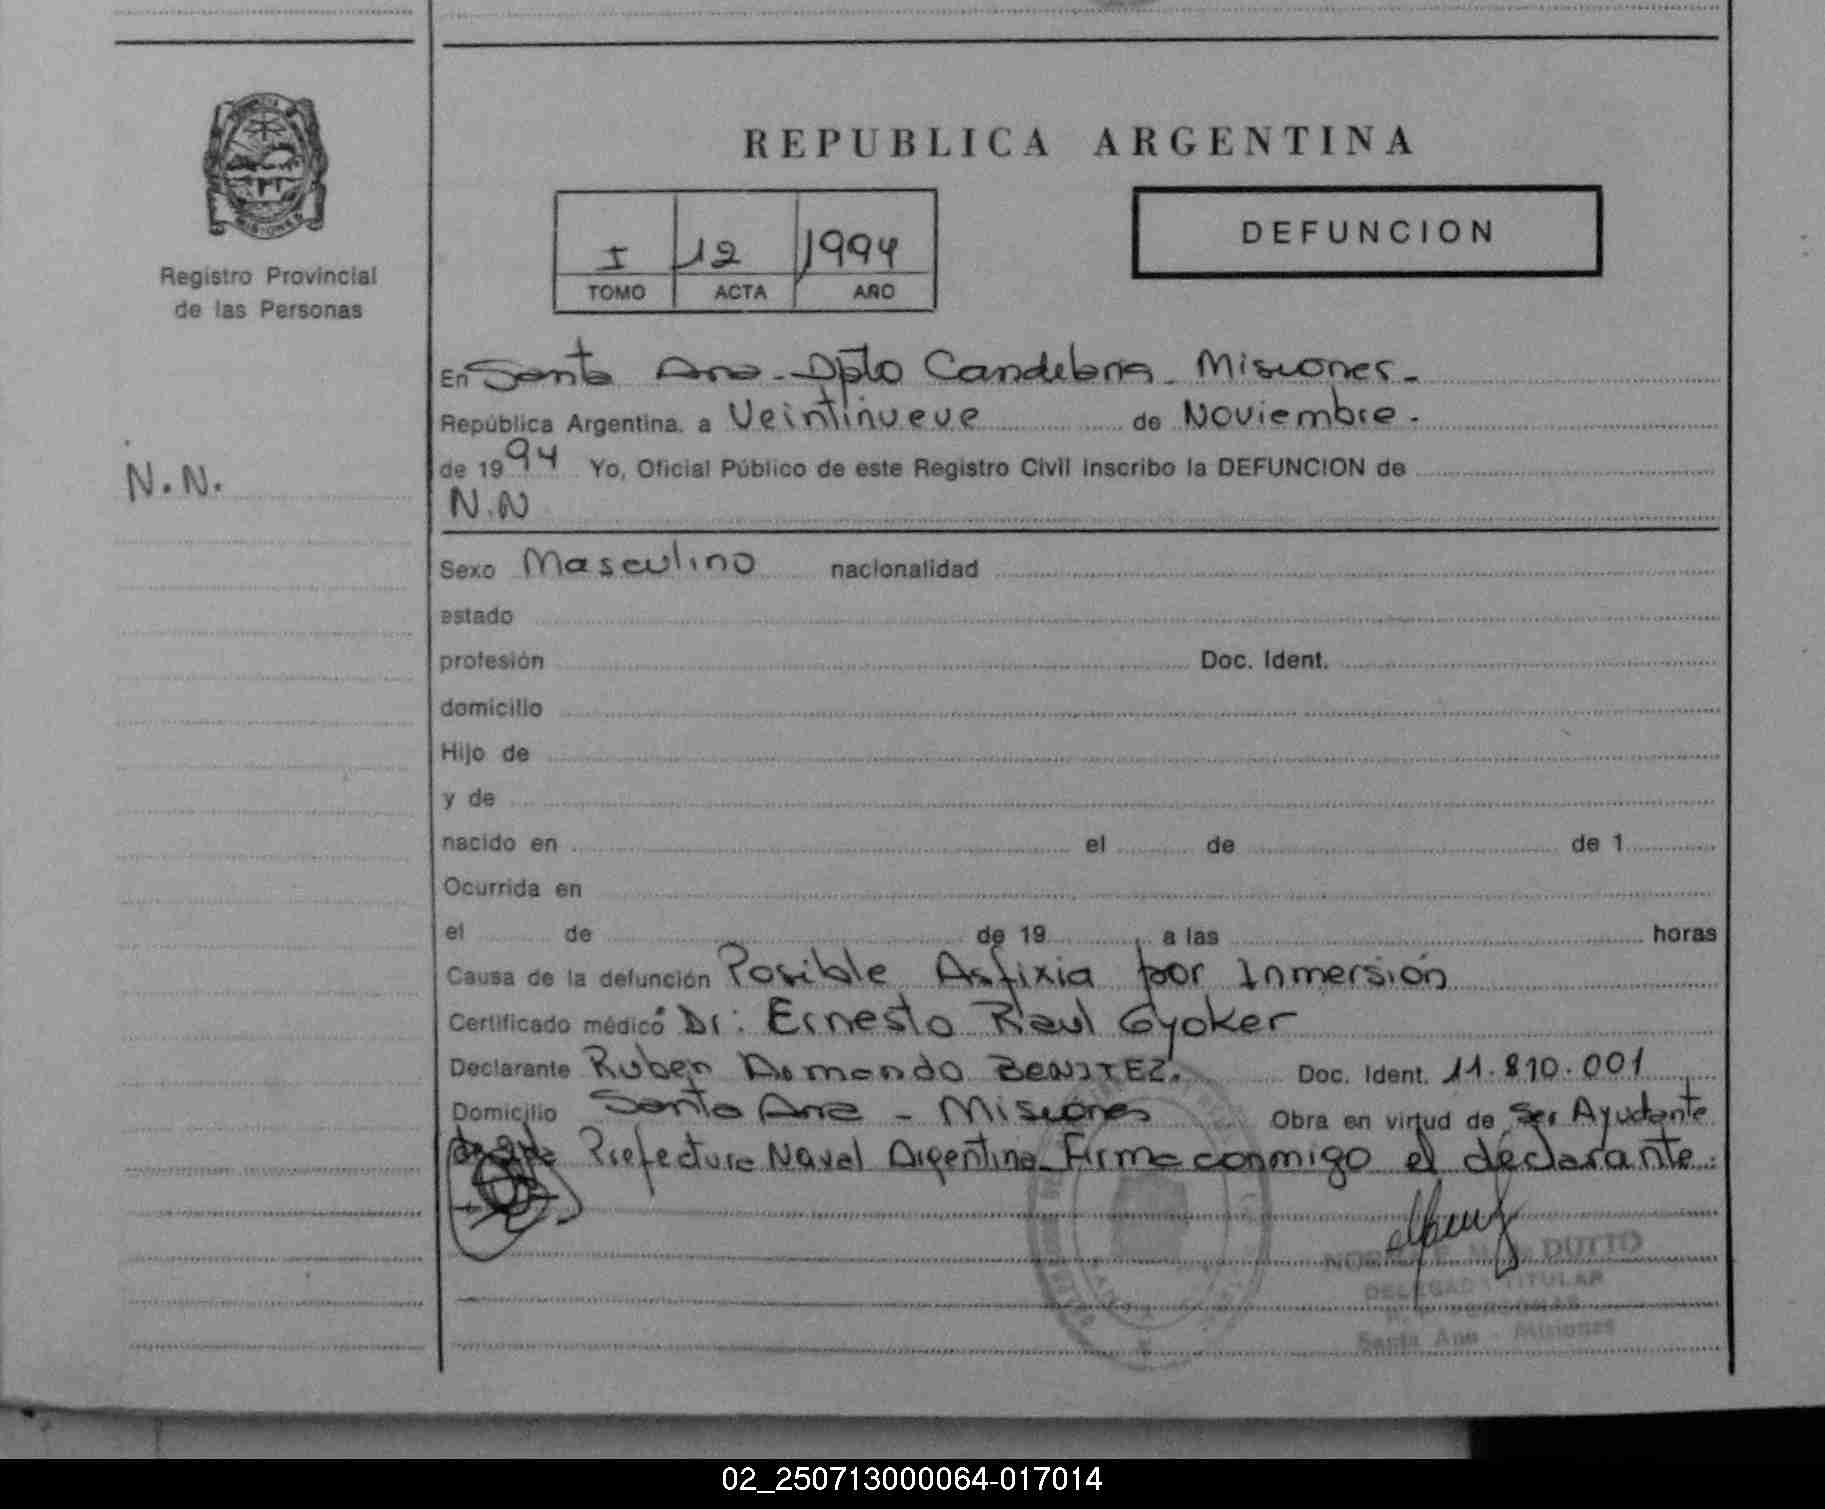 REPUBLICA ARGENTINA
I 12 1994
TOMO ACTA AÑO
DEFUNCION
MISIONES
Registro Provincial
de las Personas
N.N.
En Santa Ana - Dpto Candelaria - Misiones -
República Argentina, a Veintinueve de Noviembre -
de 1994 Yo, Oficial Público de este Registro Civil inscribo la DEFUNCION de
N.N
Sexo Masculino nacionalidad
estado
profesión Doc. Ident.
domicilio
Hijo de
y de
nacido en el de de 1
Ocurrida en
el de de 19 a las horas
Causa de la defunción Posible Asfixia por Inmersión
Certificado médico Dr: Ernesto Raul Gyoker
Declarante Ruben Armando BENITEZ. Doc. Ident. 11.810.001
Domicilio Santa Ana - Misiones Obra en virtud de Ser Ayudante
Prefectura Naval Argentina - Firma conmigo el declarante.
DUTTO
DELEGADA TITULAR
PERSONAS
Santa Ana - Misiones
02_250713000064-017014